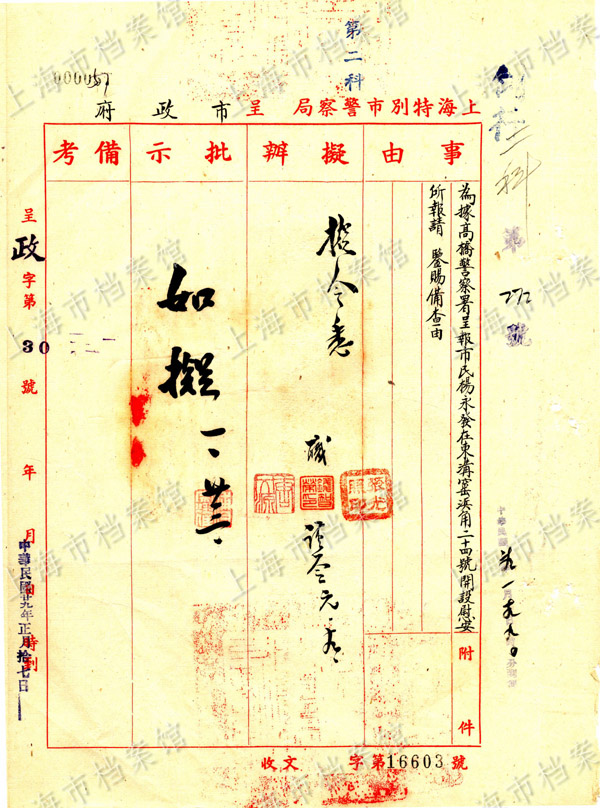 第二科
000057
上海特別市警察局 呈 市政府
事由
擬辦
批示
備考
為據高橋警察署呈報市民楊永發在東溝窰浜角二十四號開設慰安
所報請 鑒賜備查由
附件
指令悉
職
如擬 一、廿三、
呈政字第30號 年 月 日 時到
中華民國廿九年正月拾七日
二科
第 272 號
收文 字第16603號
上海市档案馆